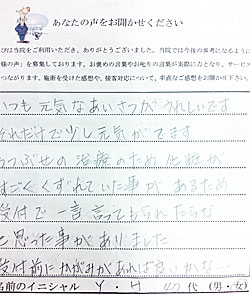 あなたの声をお聞かせください
び当院をご利用いただき、ありがとうございました。当院では今後の参考になるように
様の声」を募集しております。お褒めの言葉やお叱りの言葉が実際に力となり、サービス
つながります。施術を受けた感想や、接客対応について、率直なご感想をお聞かせ下さい。
いつも元気なあいさつがうれしいです
それだけで少し元気がでます
うつぶせの治療のため化粧が
すごくくずれていた事があるため
受付で一言言ってもられたらな
と思った事がありました
受付前にかがみがあれば良いかな…
名前のイニシャル Y・H 40代(男・女)